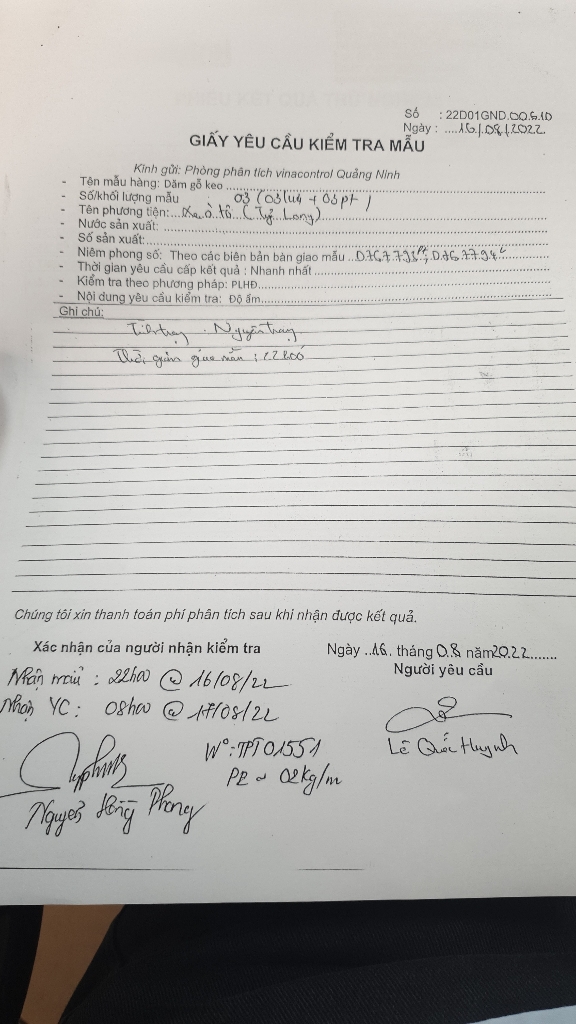 Số : 22D01GND.00610
Ngày : ....16/08/2022
GIẤY YÊU CẦU KIỂM TRA MẪU
Kính gửi: Phòng phân tích vinacontrol Quảng Ninh
- Tên mẫu hàng: Dăm gỗ keo
- Số/khối lượng mẫu 03 (03 lưu + 03 pt)
- Tên phương tiện: Xe ô tô (Tự Long)
- Nước sản xuất:
- Số sản xuất:
- Niêm phong số: Theo các biên bản bàn giao mẫu
- Thời gian yêu cầu cấp kết quả : Nhanh nhất
- Kiểm tra theo phương pháp: PLHĐ
- Nội dung yêu cầu kiểm tra: Độ ẩm
Ghi chú:
Tình trạng : Nguyên trạng
Thời gian giao mẫu :
Chúng tôi xin thanh toán phí phân tích sau khi nhận được kết quả.
Xác nhận của người nhận kiểm tra
Ngày ..16. tháng 0.8 năm2022.......
Người yêu cầu
Nhận mẫu : 22h00 @ 16/08/22
Nhận YC : 08h00 @ 17/08/22
Lê Quốc Huynh
Nº: TPT01551
PE ~ 02kg/m
Nguyễn Hồng Phong